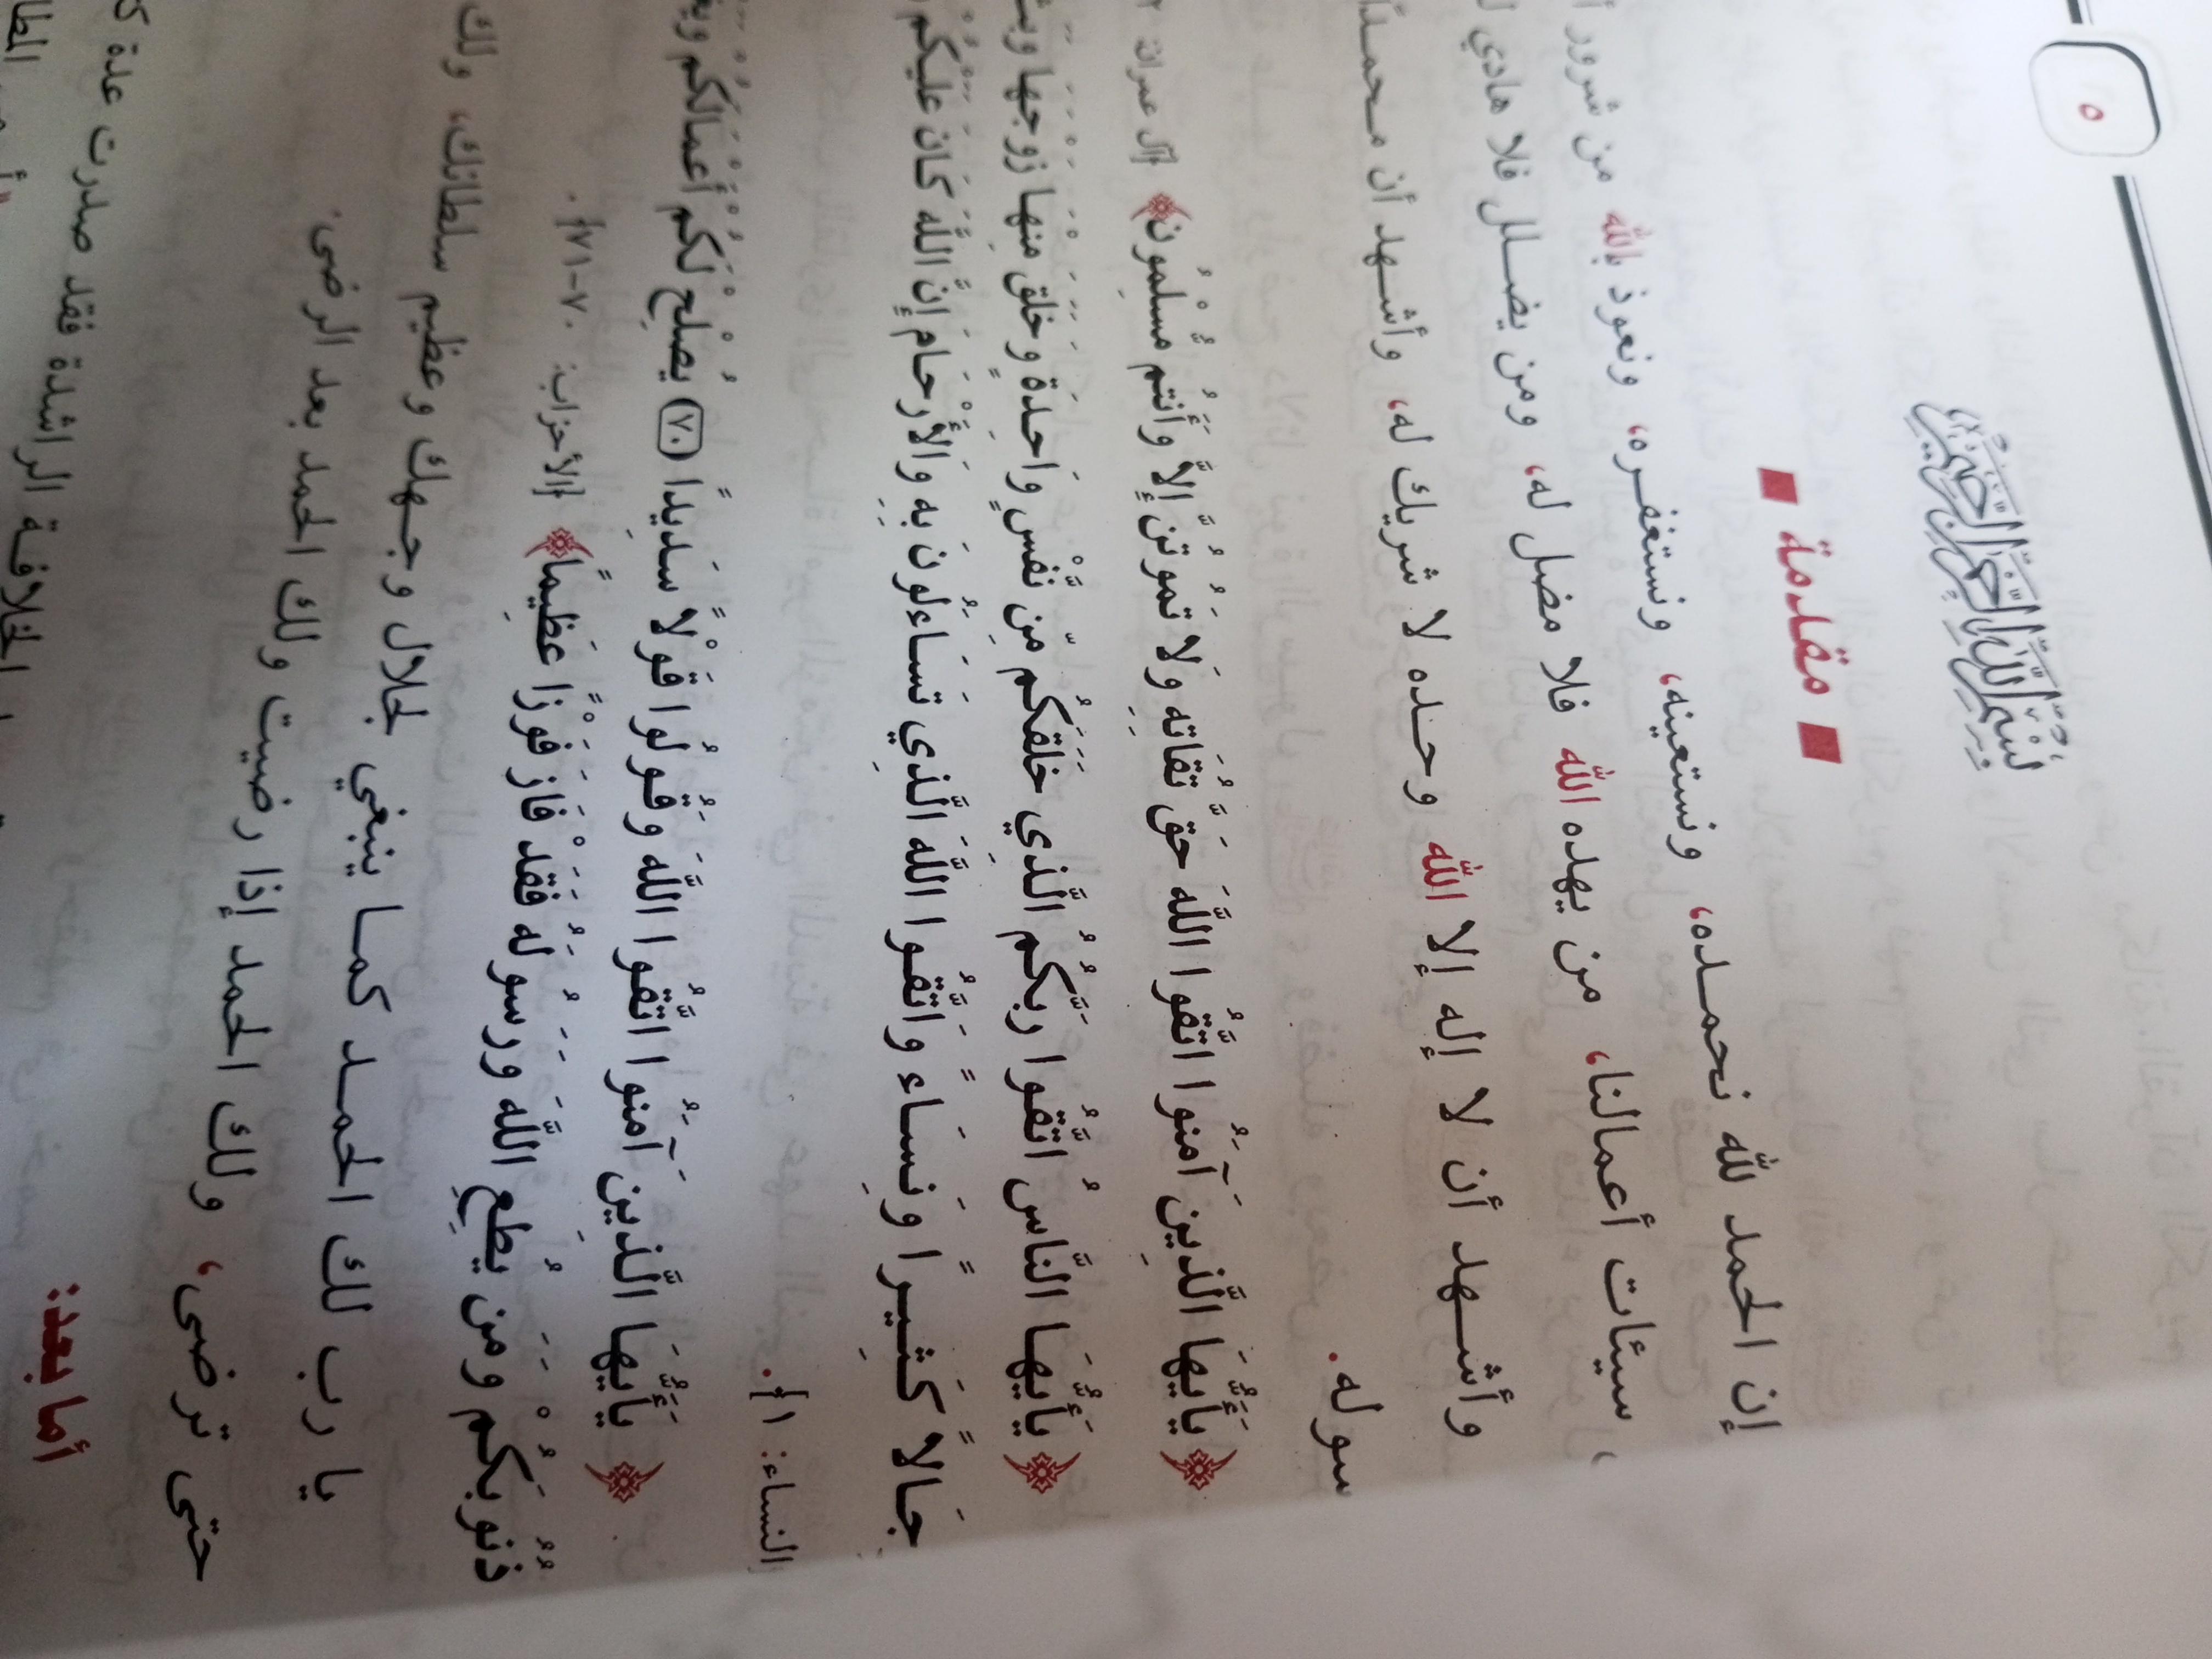 ٥
بسم الله الرحمن الرحيم
مقدمة
إن الحمد لله نحمـده، ونستعينه، ونستغفـره، ونعوذ بالله من شرور
سيئات أعمالنا، من يهده الله فلا مضل له، ومن يضـلل فلا هادي
وأشـهد أن لا إله إلا الله وحـده لا شريك له، وأشـهد أن محمـدًا
سوله.
﴿يَأَيُّهَا الَّذِينَ آمَنُوا اتَّقُوا اللَّهَ حَقَّ تُقَاتِهِ وَلَا تَمُوتُنَّ إِلَّا وَأَنْتُمْ مُسْلِمُونَ﴾ [آل عمران:
﴿يَأَيُّهَا النَّاسُ اتَّقُوا رَبَّكُمُ الَّذِي خَلَقَكُمْ مِنْ نَفْسٍ وَاحِدَةٍ وَخَلَقَ مِنْهَا زَوْجَهَا
جَالًا كَثِيرًا وَنِسَاءً وَاتَّقُوا اللَّهَ الَّذِي تَسَاءَلُونَ بِهِ وَالْأَرْحَامَ إِنَّ اللَّهَ كَانَ عَلَيْكُمْ
النساء: ١].
﴿يَأَيُّهَا الَّذِينَ آمَنُوا اتَّقُوا اللَّهَ وَقُولُوا قَوْلًا سَدِيدًا (٧٠) يُصْلِحْ لَكُمْ أَعْمَالَكُمْ
ذُنُوبَكُمْ وَمَنْ يُطِعِ اللَّهَ وَرَسُولَهُ فَقَدْ فَازَ فَوْزًا عَظِيمًا﴾ [الأحزاب: ٧٠-٧١].
يا رب لك الحمـد كمـا ينبغي لجلال وجـهك وعظيم سلطانك، ولك
حتى ترضى، ولك الحمد إذا رضيت ولك الحمد بعد الرضى.
أما بعد:
فقد صدرت عدة
الخلافـة الراشدة